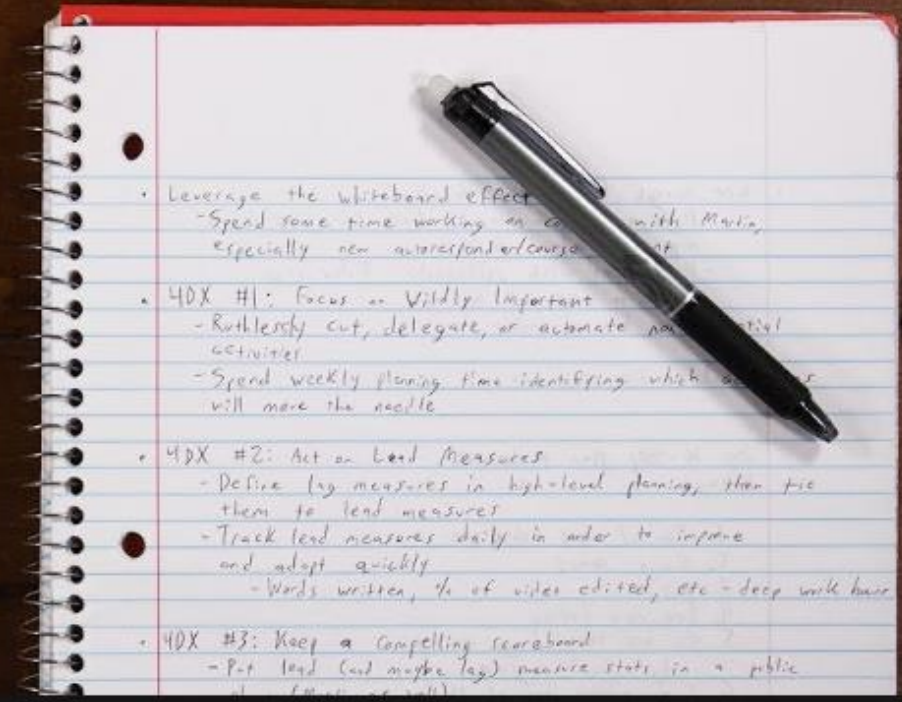 • Leverage the whiteboard effect
- Spend some time working on with Martin,
especially new autoresponder/course
• 4DX #1: Focus on Wildly Important
- Ruthlessly cut, delegate, or automate
activities
- Spend weekly planning time identifying which
will move the needle
• 4DX #2: Act on Lead Measures
- Define lag measures in high-level planning, then tie
them to lead measures
- Track lead measures daily in order to improve
and adapt quickly
- Words written, % of video edited, etc - deep work hours
• 4DX #3: Keep a compelling scoreboard
- Put lead (and maybe lag) measure stats in a public